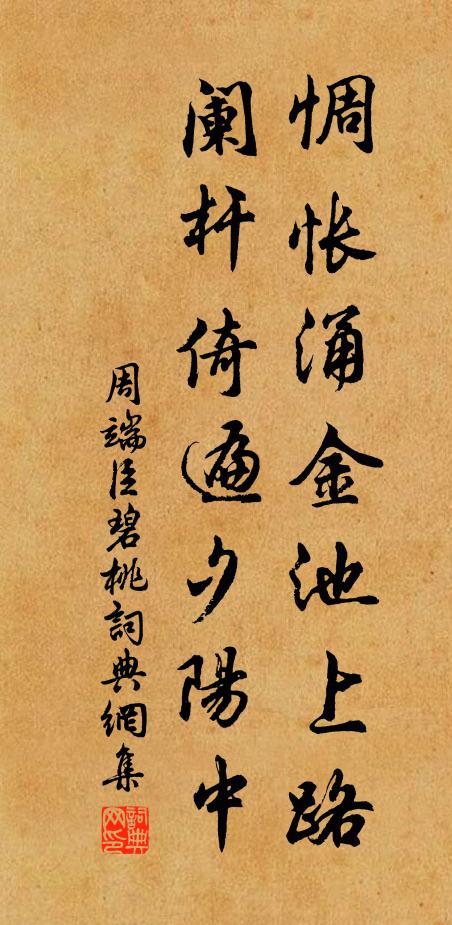 惆怅涌金池上路
阑杆倚遍夕陽中
周端臣碧桃詞典網集
詞典网印